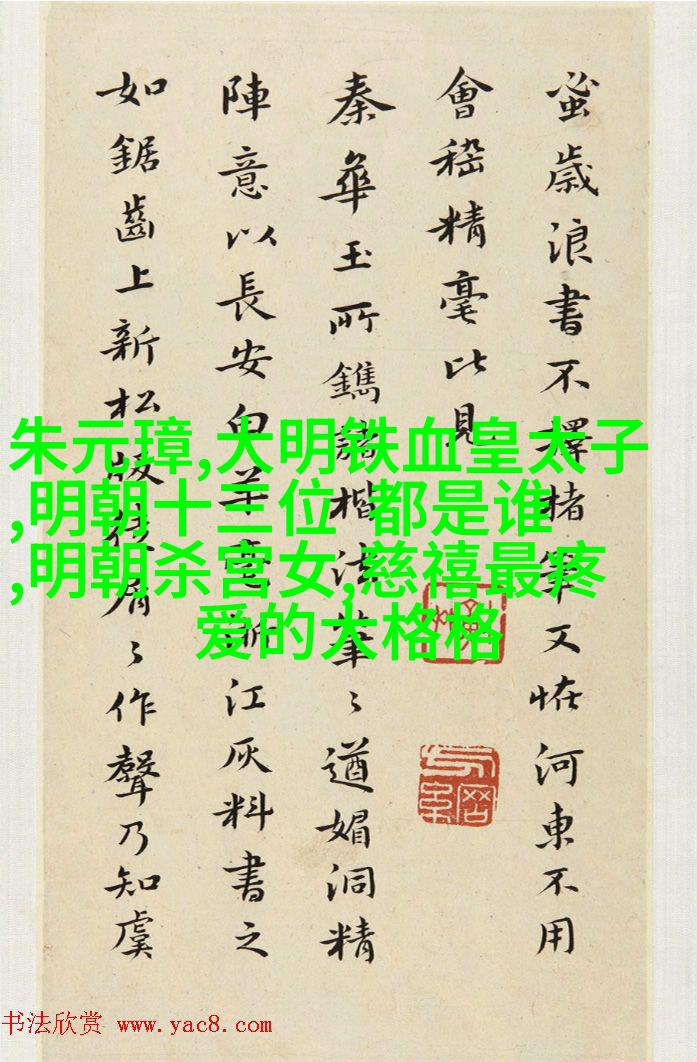 蚤歲浪書不擇楮筆又怪河東不用
會稽精毫比見
秦華玉所鐫諸楷法筆〻遒媚洞精
陣意以長安白羊毫浙江灰料書之
如鋸齒上新松版屑〻作聲乃知虞
朱元璋,大明铁血皇太子
,明朝十三位 都是谁
,明朝杀宫女,慈禧最疼
爱的大格格
书法欣赏 www.yac8.com